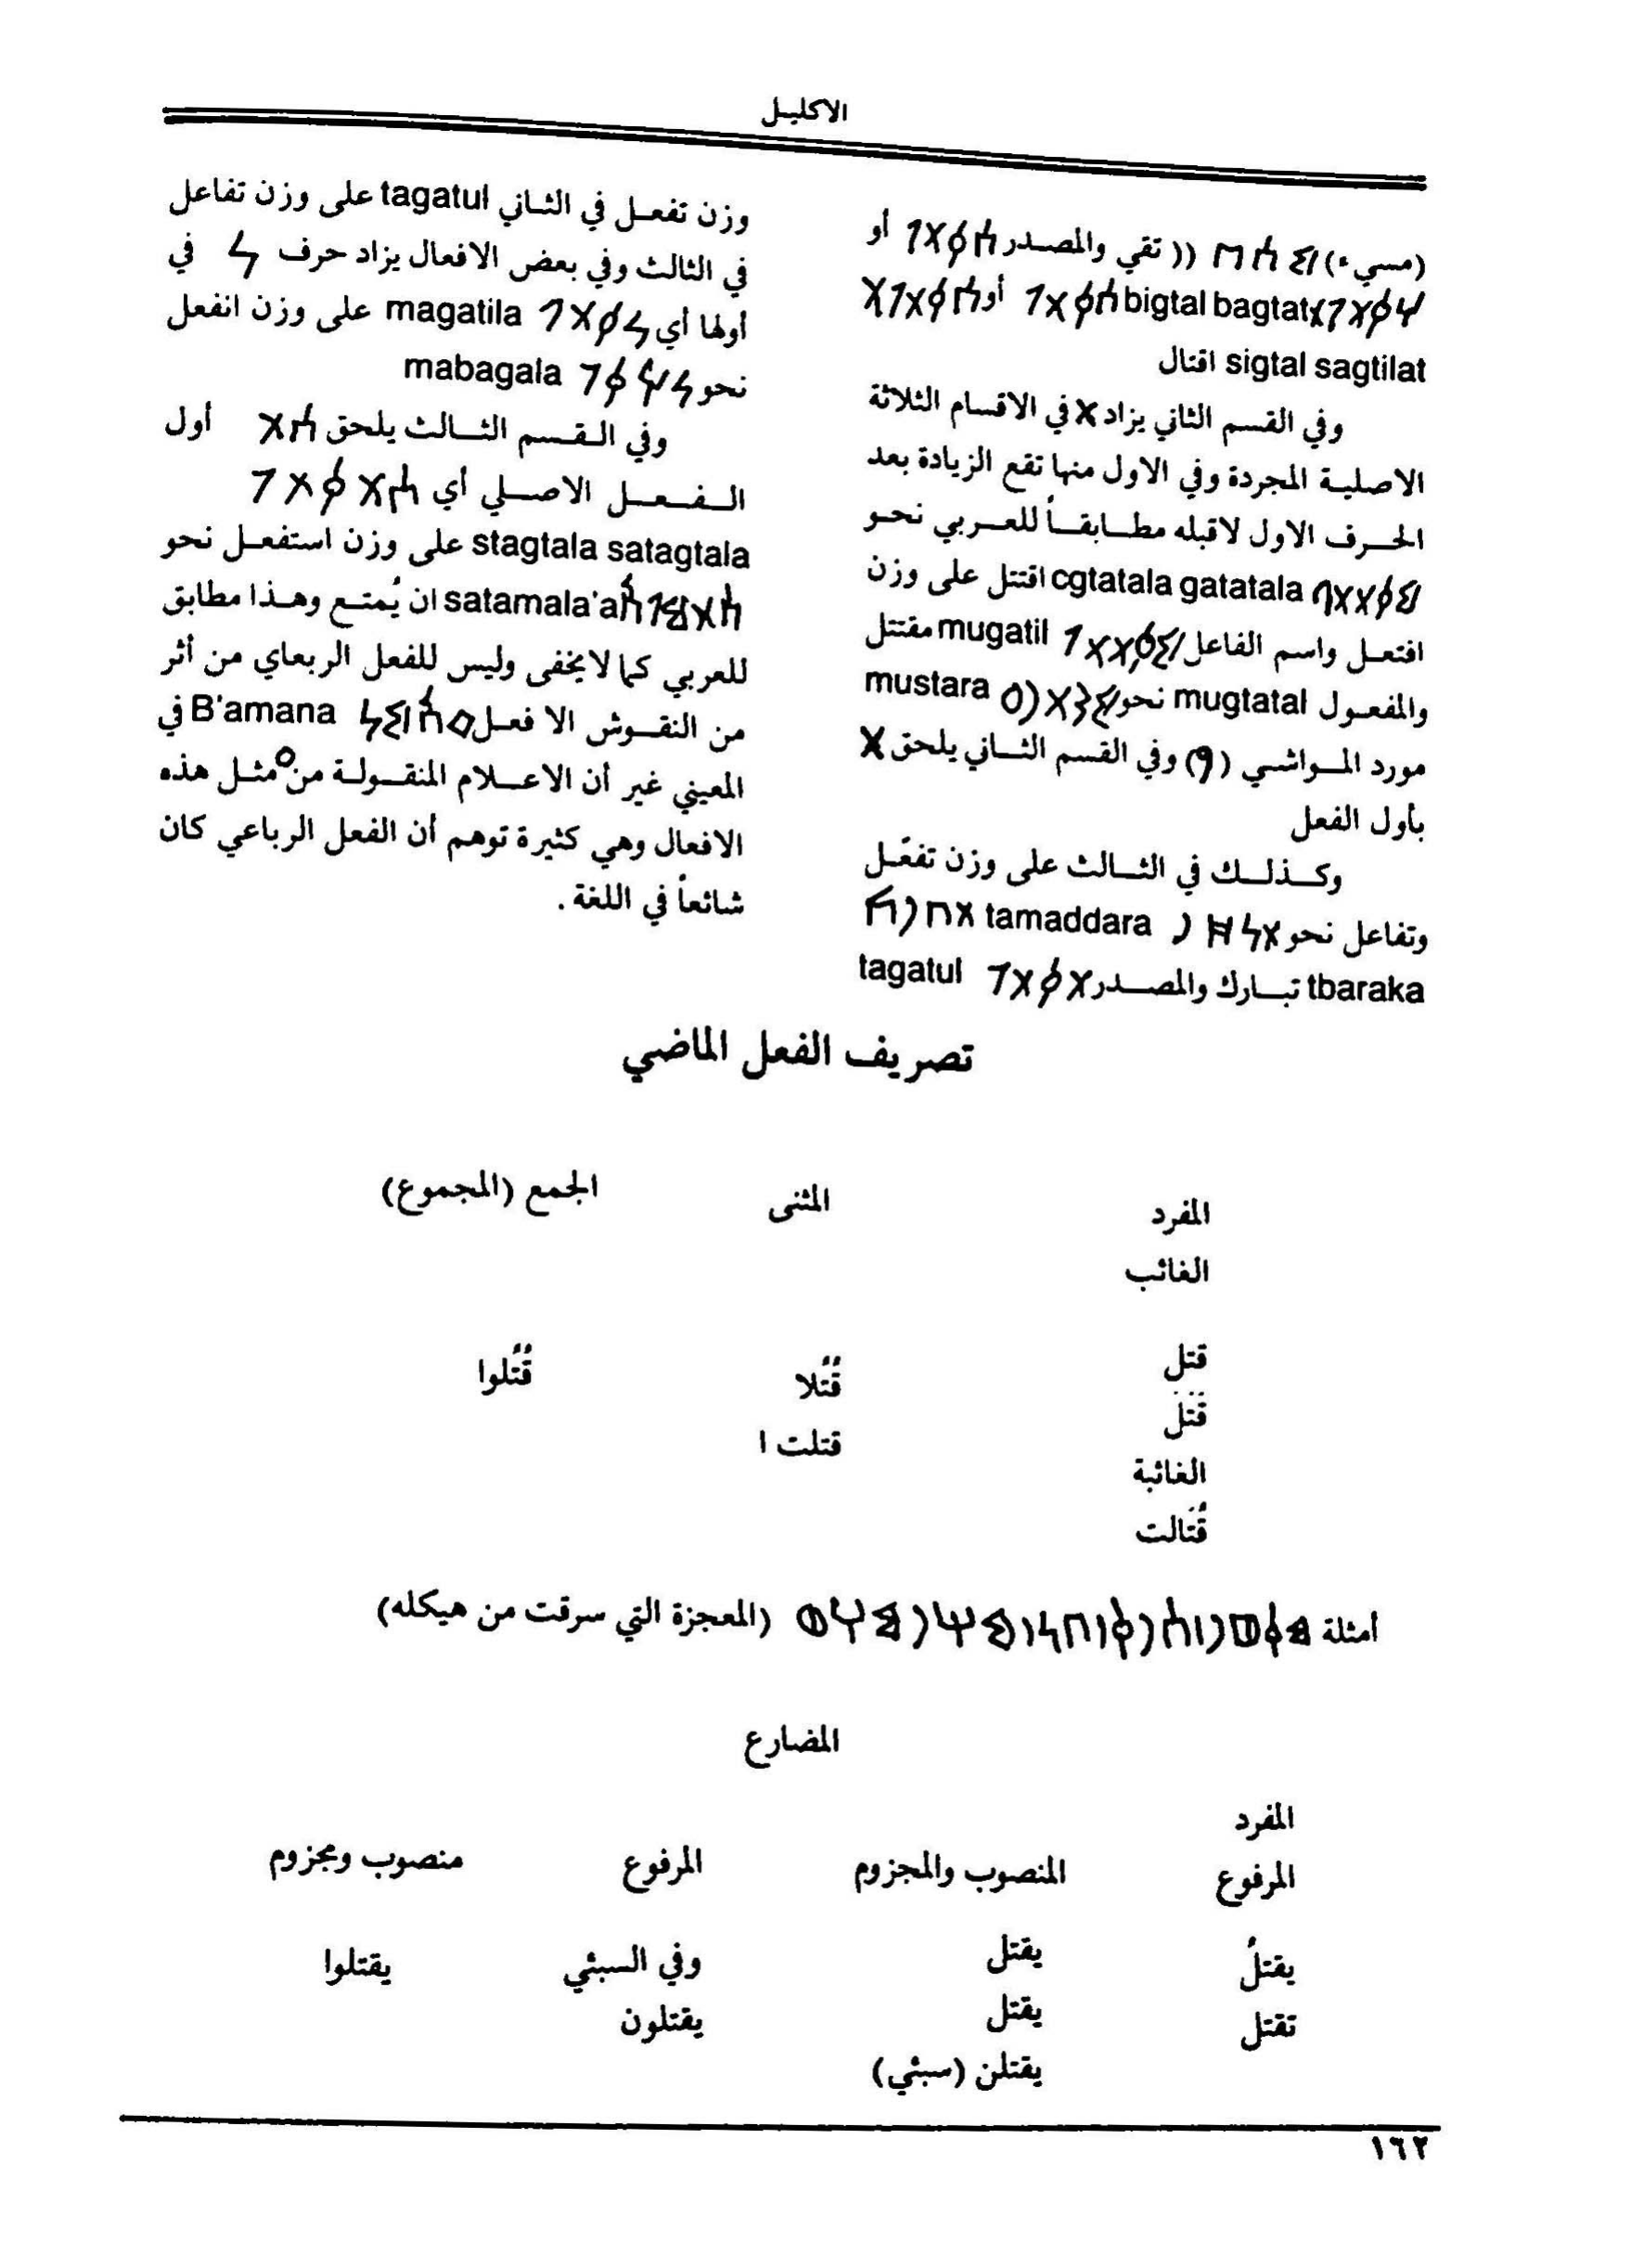 الاكليل
(مسيء) )) تقي والمصدر أو
bigtal bagtat أو
sigtal sagtilat اقتال
وفي القسم الثاني يزاد X في الاقسام الثلاثة
الاصلية المجردة وفي الاول منها تقع الزيادة بعد
الحرف الاول لاقبله مطابقاً للعربي نحو
cgtatala gatatala اقتتل على وزن
افتعل واسم الفاعل mugatil مقتتل
والمفعول mugtatal نحو mustara
مورد المواشي (9) وفي القسم الثاني يلحق X
بأول الفعل
وكذلك في الثالث على وزن تفعّل
وتفاعل نحو tamaddara
tbaraka تبارك والمصدر tagatul
وزن تفعل في الثاني tagatul على وزن تفاعل
في الثالث وفي بعض الافعال يزاد حرف في
أولها أي magatila على وزن انفعل
نحو mabagala
وفي القسم الثالث يلحق أول
الفعل الاصلي أي
stagtala satagtala على وزن استفعل نحو
satamala'a ان يُمتع وهذا مطابق
للعربي كما لايخفى وليس للفعل الربعاي من أثر
من النقوش الا فعل B'amana في
المعيني غير أن الاعلام المنقولة من مثل هذه
الافعال وهي كثيرة توهم أن الفعل الرباعي كان
شائعاً في اللغة .
تصريف الفعل الماضي
المفرد المثنى الجمع (المجموع)
الغائب
قتل قُتُلا قُتُلوا
قتل قتلت ا
الغائبة
قُتالت
امثلة (المعجزة التي سرقت من هيكله)
المضارع
المفرد
المرفوع المنصوب والمجزوم المرفوع منصوب ومجزوم
يقتلُ يقتل وفي السبئي يقتلوا
تقتل يقتل يقتلون
يقتلن (سبئي)
١٦٢